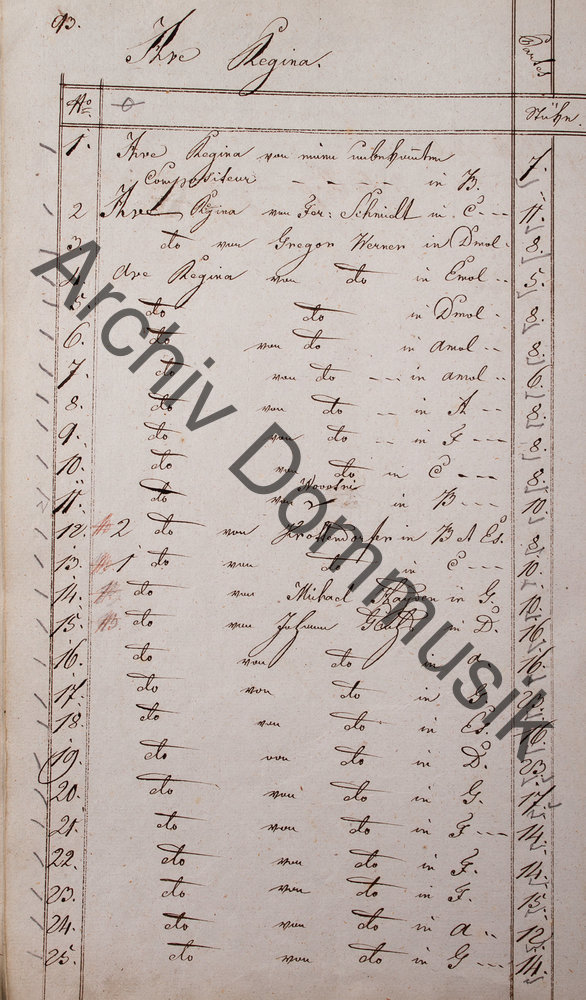 93.
Ave Regina.
Partes
No
Stükn.
1. Ave Regina von einem unbekannten
Compositeur - - - - in B. 7.
2 Ave Regina von Gor: Schmidt in C - - - 11.
3. do von Gregor Werner in Dmol - 8.
4. Ave Regina von do in Emol - - 5.
5. do do in Dmol - 8.
6. do von do in amol - - 8.
7. do von do - - - in amol - - 6.
8. do von do - - in A - - 8.
9. do von do - - in F - - - 8.
10. do von do in C - - - 8.
11. do von Novotni in B - - - 10.
12. No 2 do von Krottendorfer in B et Es. 8.
13. No 1 do von do in C - - - 10.
14. do von Michael Hayden in G. 10.
15. No 3 do von Johann in D. 16.
16. do von do in a. 16.
17. do von do in G.
18. do von do in Es. 16.
19. do von do in D. 23.
20. do von do in G. 17.
21. do von do in F - - - 14.
22. do von do in F. 14.
23. do von do in F. 15.
24. do von do in a - - 12.
25. do von do in G - - - 14.
Archiv Dommusik